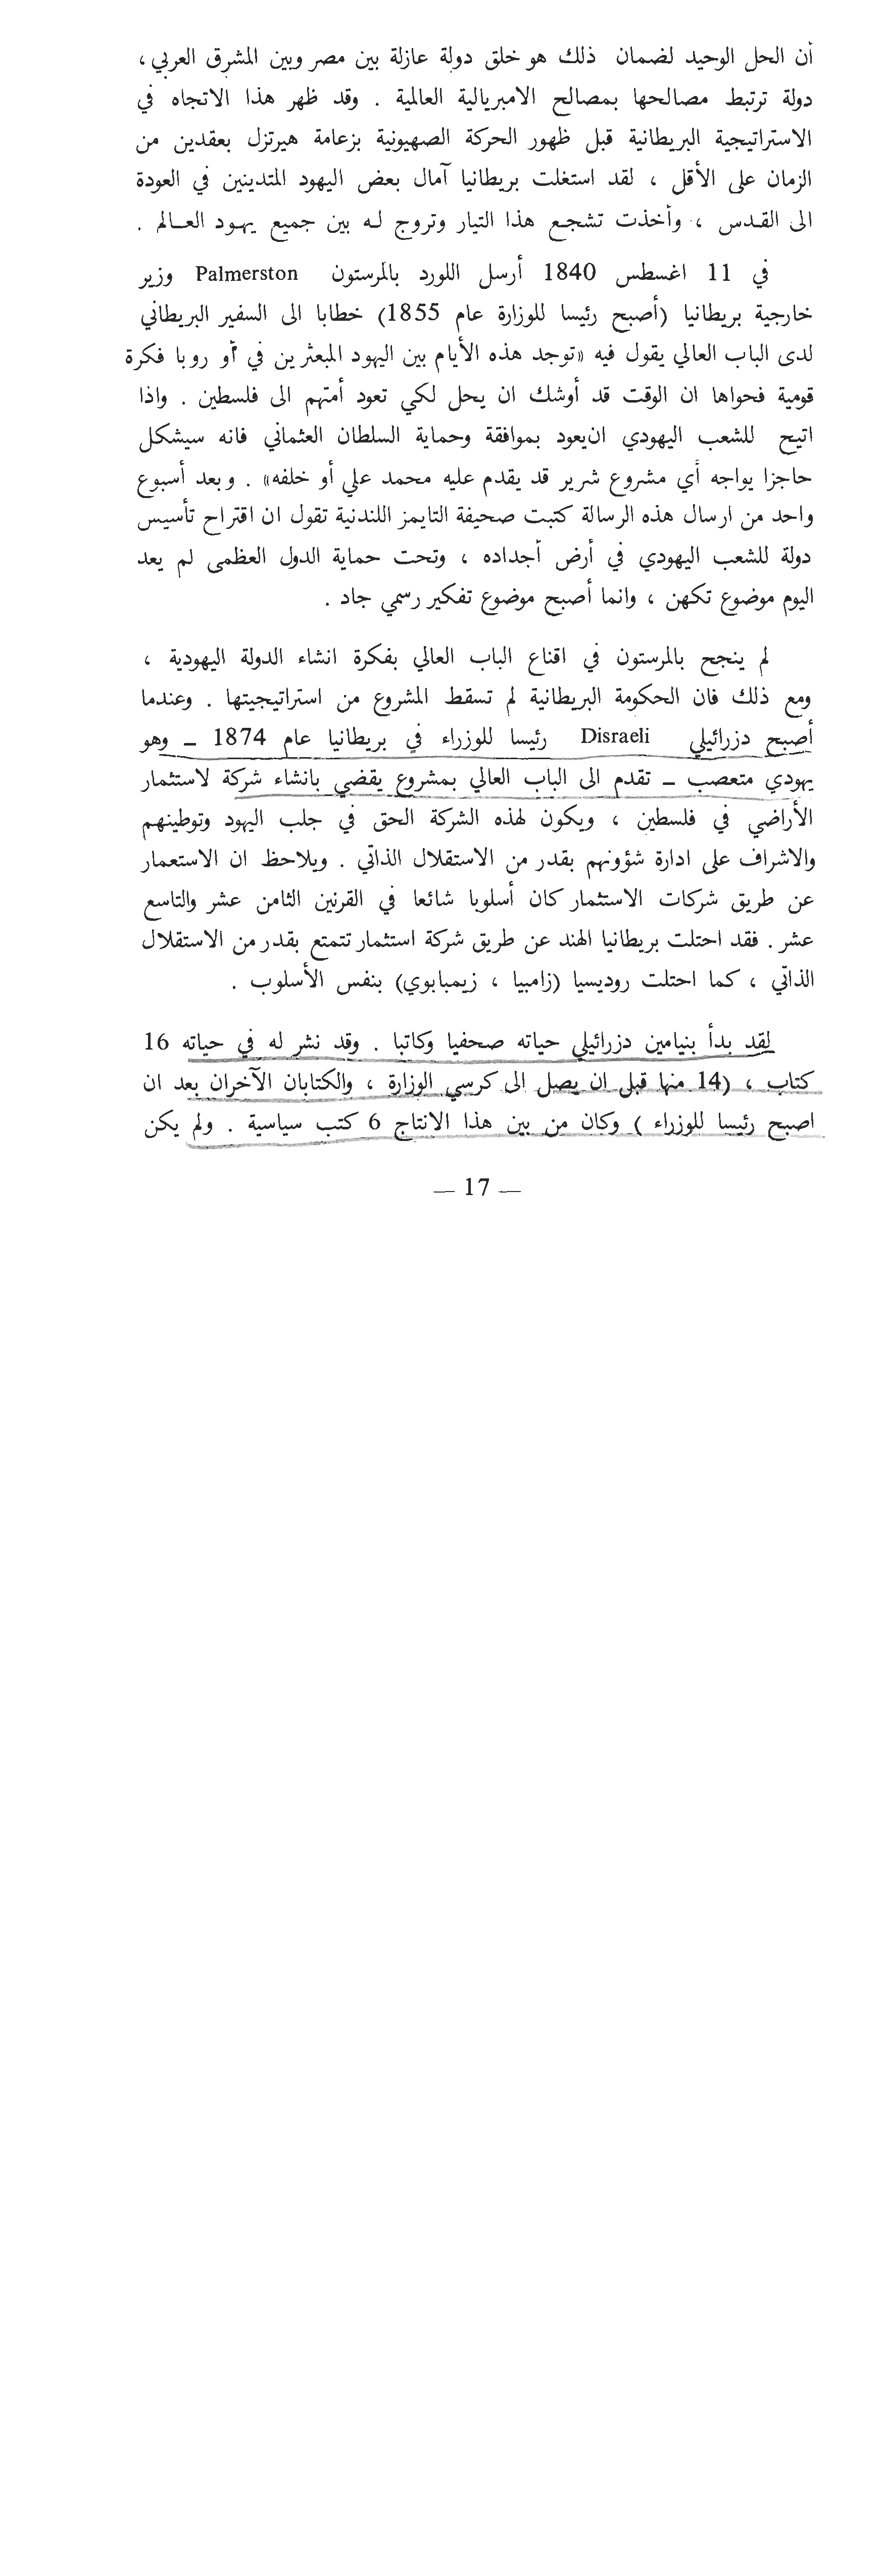 أن الحل الوحيد لضمان ذلك هو خلق دولة عازلة بين مصر وبين المشرق العربي ،
دولة ترتبط مصالحها بمصالح الامبريالية العالمية . وقد ظهر هذا الاتجاه في
الاستراتيجية البريطانية قبل ظهور الحركة الصهيونية بزعامة هيرتزل بعقدين من
الزمان على الأقل ، لقد استغلت بريطانيا آمال بعض اليهود المتدينين في العودة
الى القدس ، وأخذت تشجع هذا التيار وتروج له بين جميع يهود العالم .
في 11 اغسطس 1840 أرسل اللورد بالمرستون Palmerston وزير
خارجية بريطانيا (أصبح رئيسا للوزارة عام 1855) خطابا الى السفير البريطاني
لدى الباب العالي يقول فيه «توجد هذه الأيام بين اليهود المبعثرين في أوروبا فكرة
قومية فحواها ان الوقت قد أوشك ان يحل لكي تعود أمتهم الى فلسطين . واذا
اتيح للشعب اليهودي ان‌يعود بموافقة وحماية السلطان العثماني فانه سيشكل
حاجزا يواجه أي مشروع شرير قد يقدم عليه محمد علي أو خلفه» . وبعد أسبوع
واحد من ارسال هذه الرسالة كتبت صحيفة التايمز اللندنية تقول ان اقتراح تأسيس
دولة للشعب اليهودي في أرض أجداده ، وتحت حماية الدول العظمى لم يعد
اليوم موضوع تكهن ، وانما أصبح موضوع تفكير رسمي جاد .
لم ينجح بالمرستون في اقناع الباب العالي بفكرة انشاء الدولة اليهودية ،
ومع ذلك فان الحكومة البريطانية لم تسقط المشروع من استراتيجيتها . وعندما
أصبح دزرائيلي Disraeli رئيسا للوزراء في بريطانيا عام 1874 ــ وهو
يهودي متعصب ــ تقدم الى الباب العالي بمشروع يقضي بانشاء شركة لاستثمار
الأراضي في فلسطين ، ويكون لهذه الشركة الحق في جلب اليهود وتوطينهم
والاشراف على ادارة شؤونهم بقدر من الاستقلال الذاتي . ويلاحظ ان الاستعمار
عن طريق شركات الاستثمار كان أسلوبا شائعا في القرنين الثامن عشر والتاسع
عشر . فقد احتلت بريطانيا الهند عن طريق شركة استثمار تتمتع بقدر من الاستقلال
الذاتي ، كما احتلت روديسيا (زامبيا ، زيمبابوي) بنفس الأسلوب .
لقد بدأ بنيامين دزرائيلي حياته صحفيا وكاتبا . وقد نشر له في حياته 16
كتاب ، (14 منها قبل ان يصل الى كرسي الوزارة ، والكتابان الآخران بعد ان
اصبح رئيسا للوزراء ) وكان من بين هذا الانتاج 6 كتب سياسية . ولم يكن
— 17 —